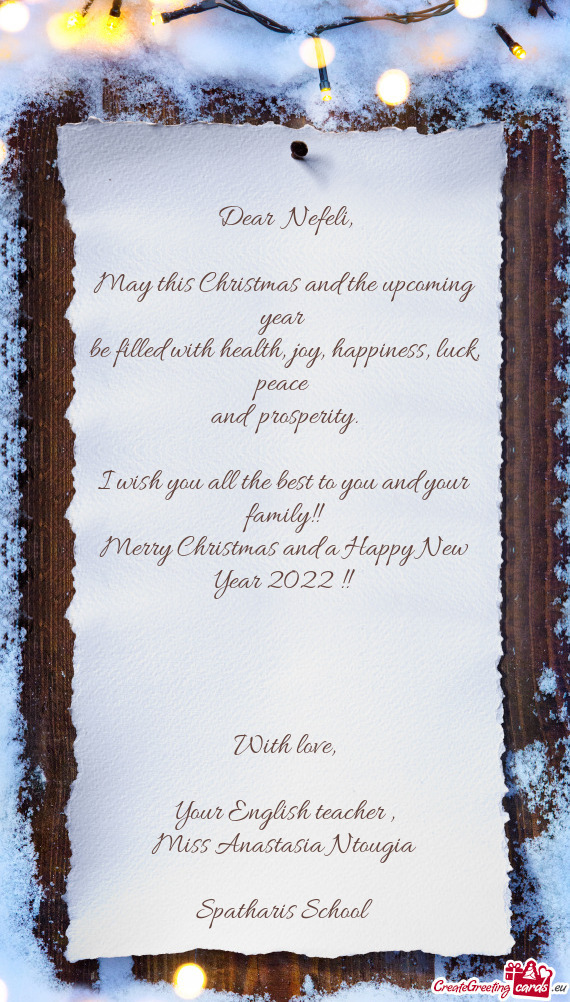 Dear Nefeli,
May this Christmas and the upcoming
year
be filled with health, joy, happiness, luck,
peace
and prosperity.
I wish you all the best to you and your
family!!
Merry Christmas and a Happy New
Year 2022 !!
With love,
Your English teacher ,
Miss Anastasia Ntougia
Spatharis School
CreateGreetingcards.eu